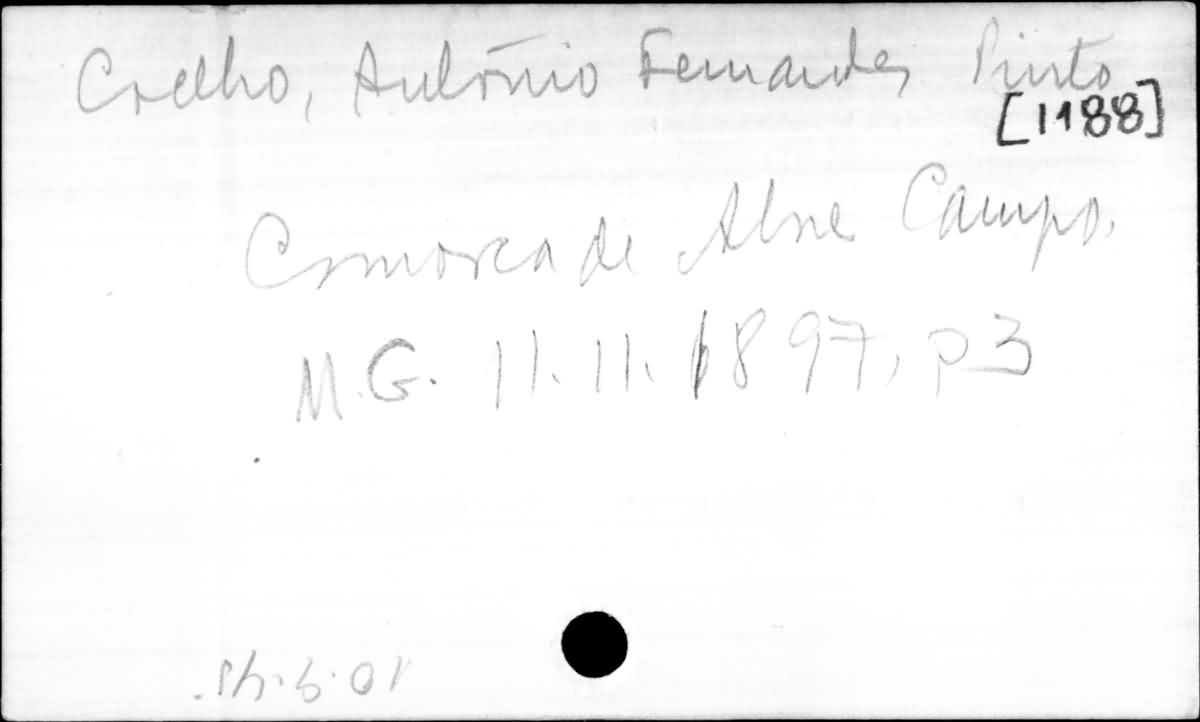 Coelho, António Fernandes Pinto
[1188]
Comarca de Abre Campo.
M.G. 11.11.1897, p3